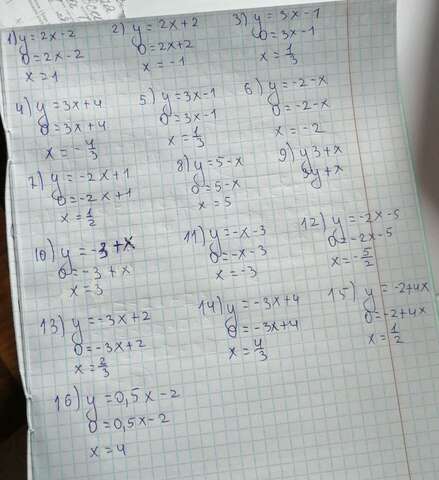 1) y = 2x - 2
0 = 2x - 2
x = 1
2) y = 2x + 2
0 = 2x + 2
x = -1
3) y = 3x - 1
0 = 3x - 1
x = 1/3
4) y = 3x + 4
0 = 3x + 4
x = -4/3
5) y = 3x - 1
0 = 3x - 1
x = 1/3
6) y = -2 - x
0 = -2 - x
x = -2
7) y = -2x + 1
0 = -2x + 1
x = 1/2
8) y = 5 - x
0 = 5 - x
x = 5
9) y 3 + x
3y + x
10) y = -3 + x
0 = -3 + x
x = 3
11) y = -x - 3
0 = -x - 3
x = -3
12) y = -2x - 5
0 = -2x - 5
x = -5/2
13) y = -3x + 2
0 = -3x + 2
x = 2/3
14) y = -3x + 4
0 = -3x + 4
x = 4/3
15) y = -2 + 4x
0 = -2 + 4x
x = 1/2
16) y = 0,5x - 2
0 = 0,5x - 2
x = 4